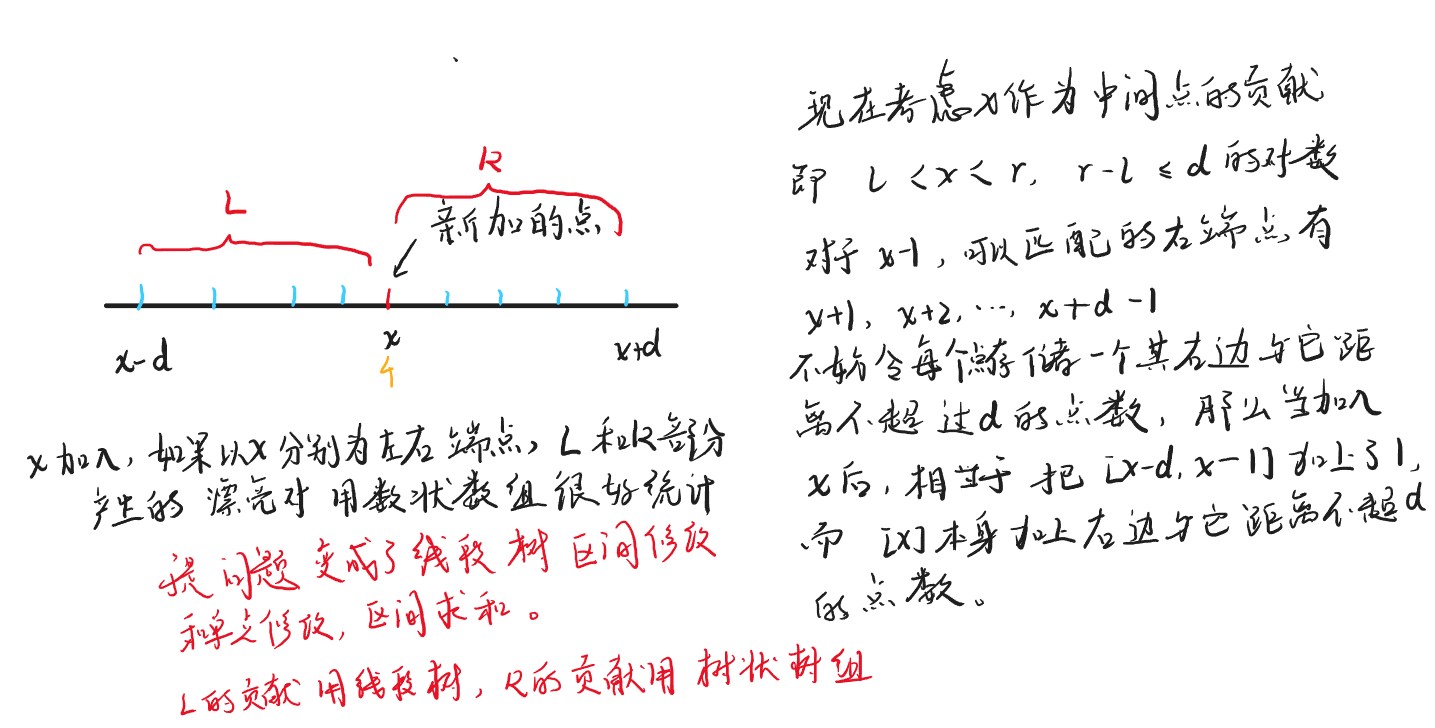 L
R
新加的点
x-d
x
x+d
4
x加入，如果以x分别为左右端点，L和R部分
产生的漂亮对用数状数组很好统计
问题变成了线段树区间修改
和单点修改，区间求和。
L的贡献用线段树，R的贡献用树状树组
现在考虑x作为中间点的贡献
即 l<x<r, r-l≤d的对数
对于x-1，可以匹配的右端点有
x+1, x+2, ..., x+d-1
不妨令每个点存储一个其右边与它距
离不超过d的点数，那么当加入
x后，相当于把[x-d, x-1]加上了1,
而[x]本身加上右边与它距离不超d
的点数。